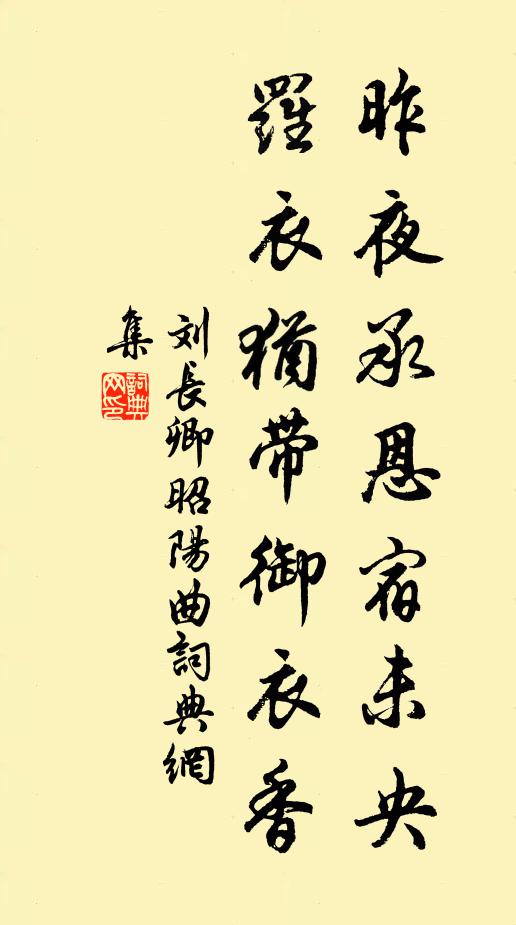 昨夜承恩宿未央
羅衣猶帶御衣香
刘長卿昭陽曲詞典網
集
詞典
网印